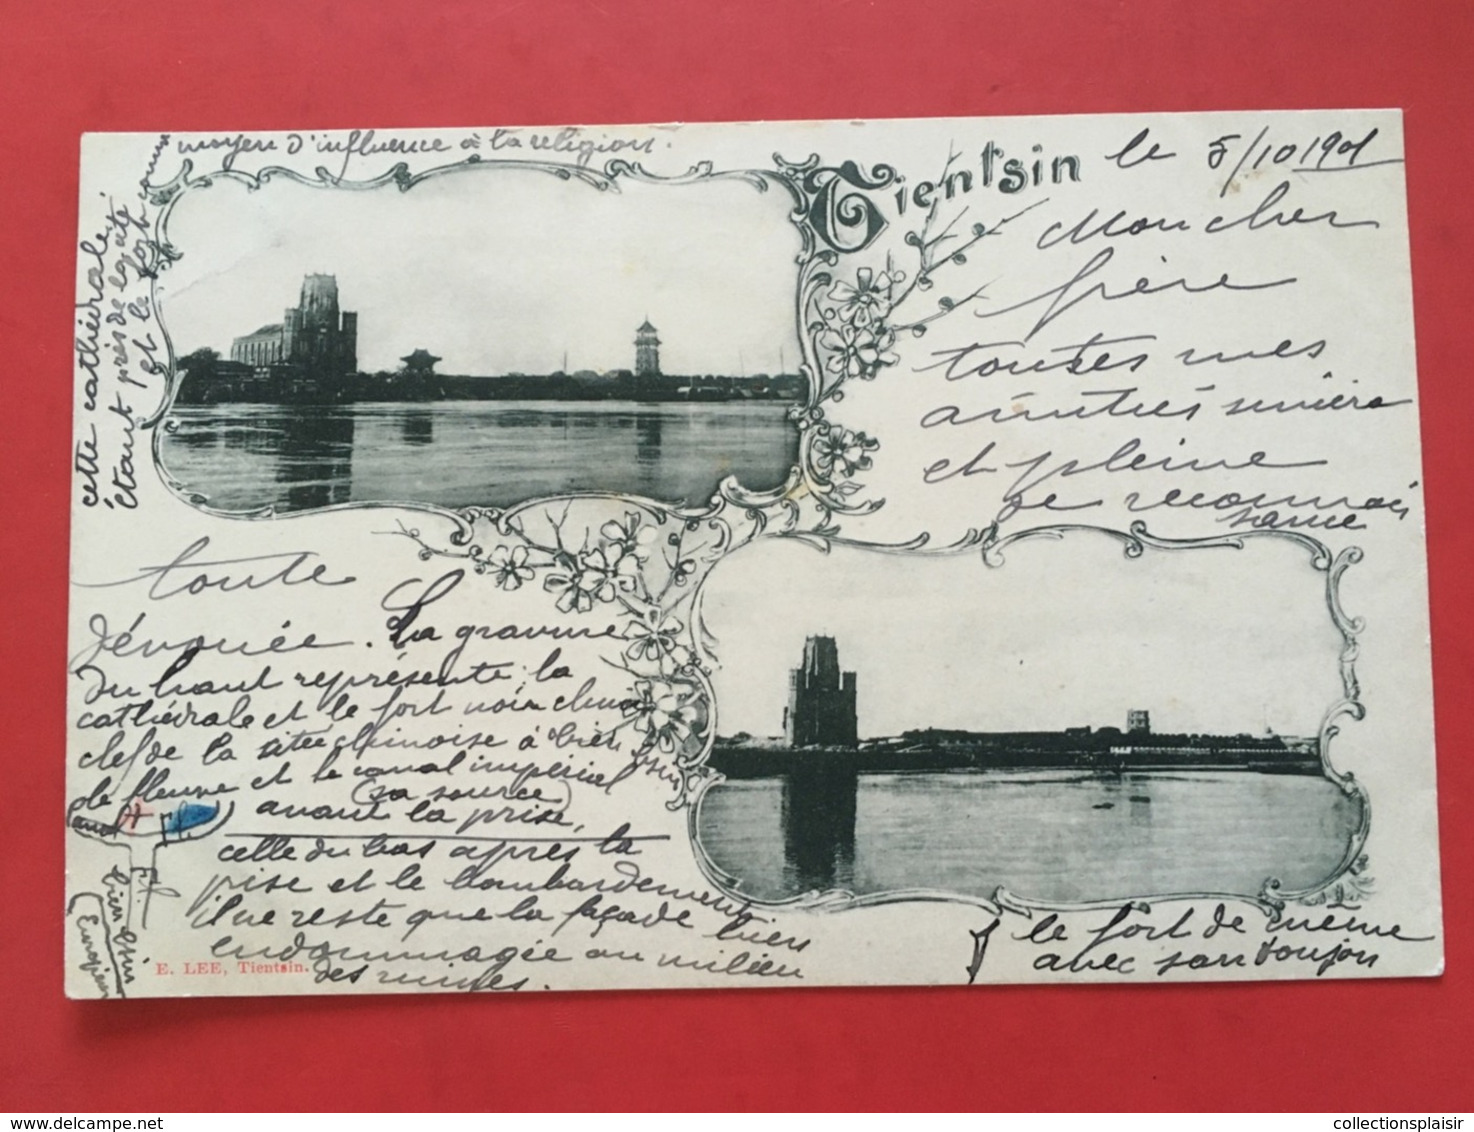 Tientsin le 8/10 1901
Mon cher
frère
toutes mes
amitiés sincères
et pleine
de reconnais
sance
toute
dévouée. La gravure
du haut représente la
cathédrale et le fort noir chinois
clef de la citée chinoise à bien
le fleuve et le canal impérial
(sa source)
avant la prise,
celle du bas après la
prise et le bombardement
il ne reste que la façade bien
endommagée au milieu
des ruines.
le fort de même
avec son donjon
cette cathédrale
étant près de
et le fort comme
moyen d'influence à la religion.
E. LEE, Tientsin.
delcampe.net
collectionsplaisir